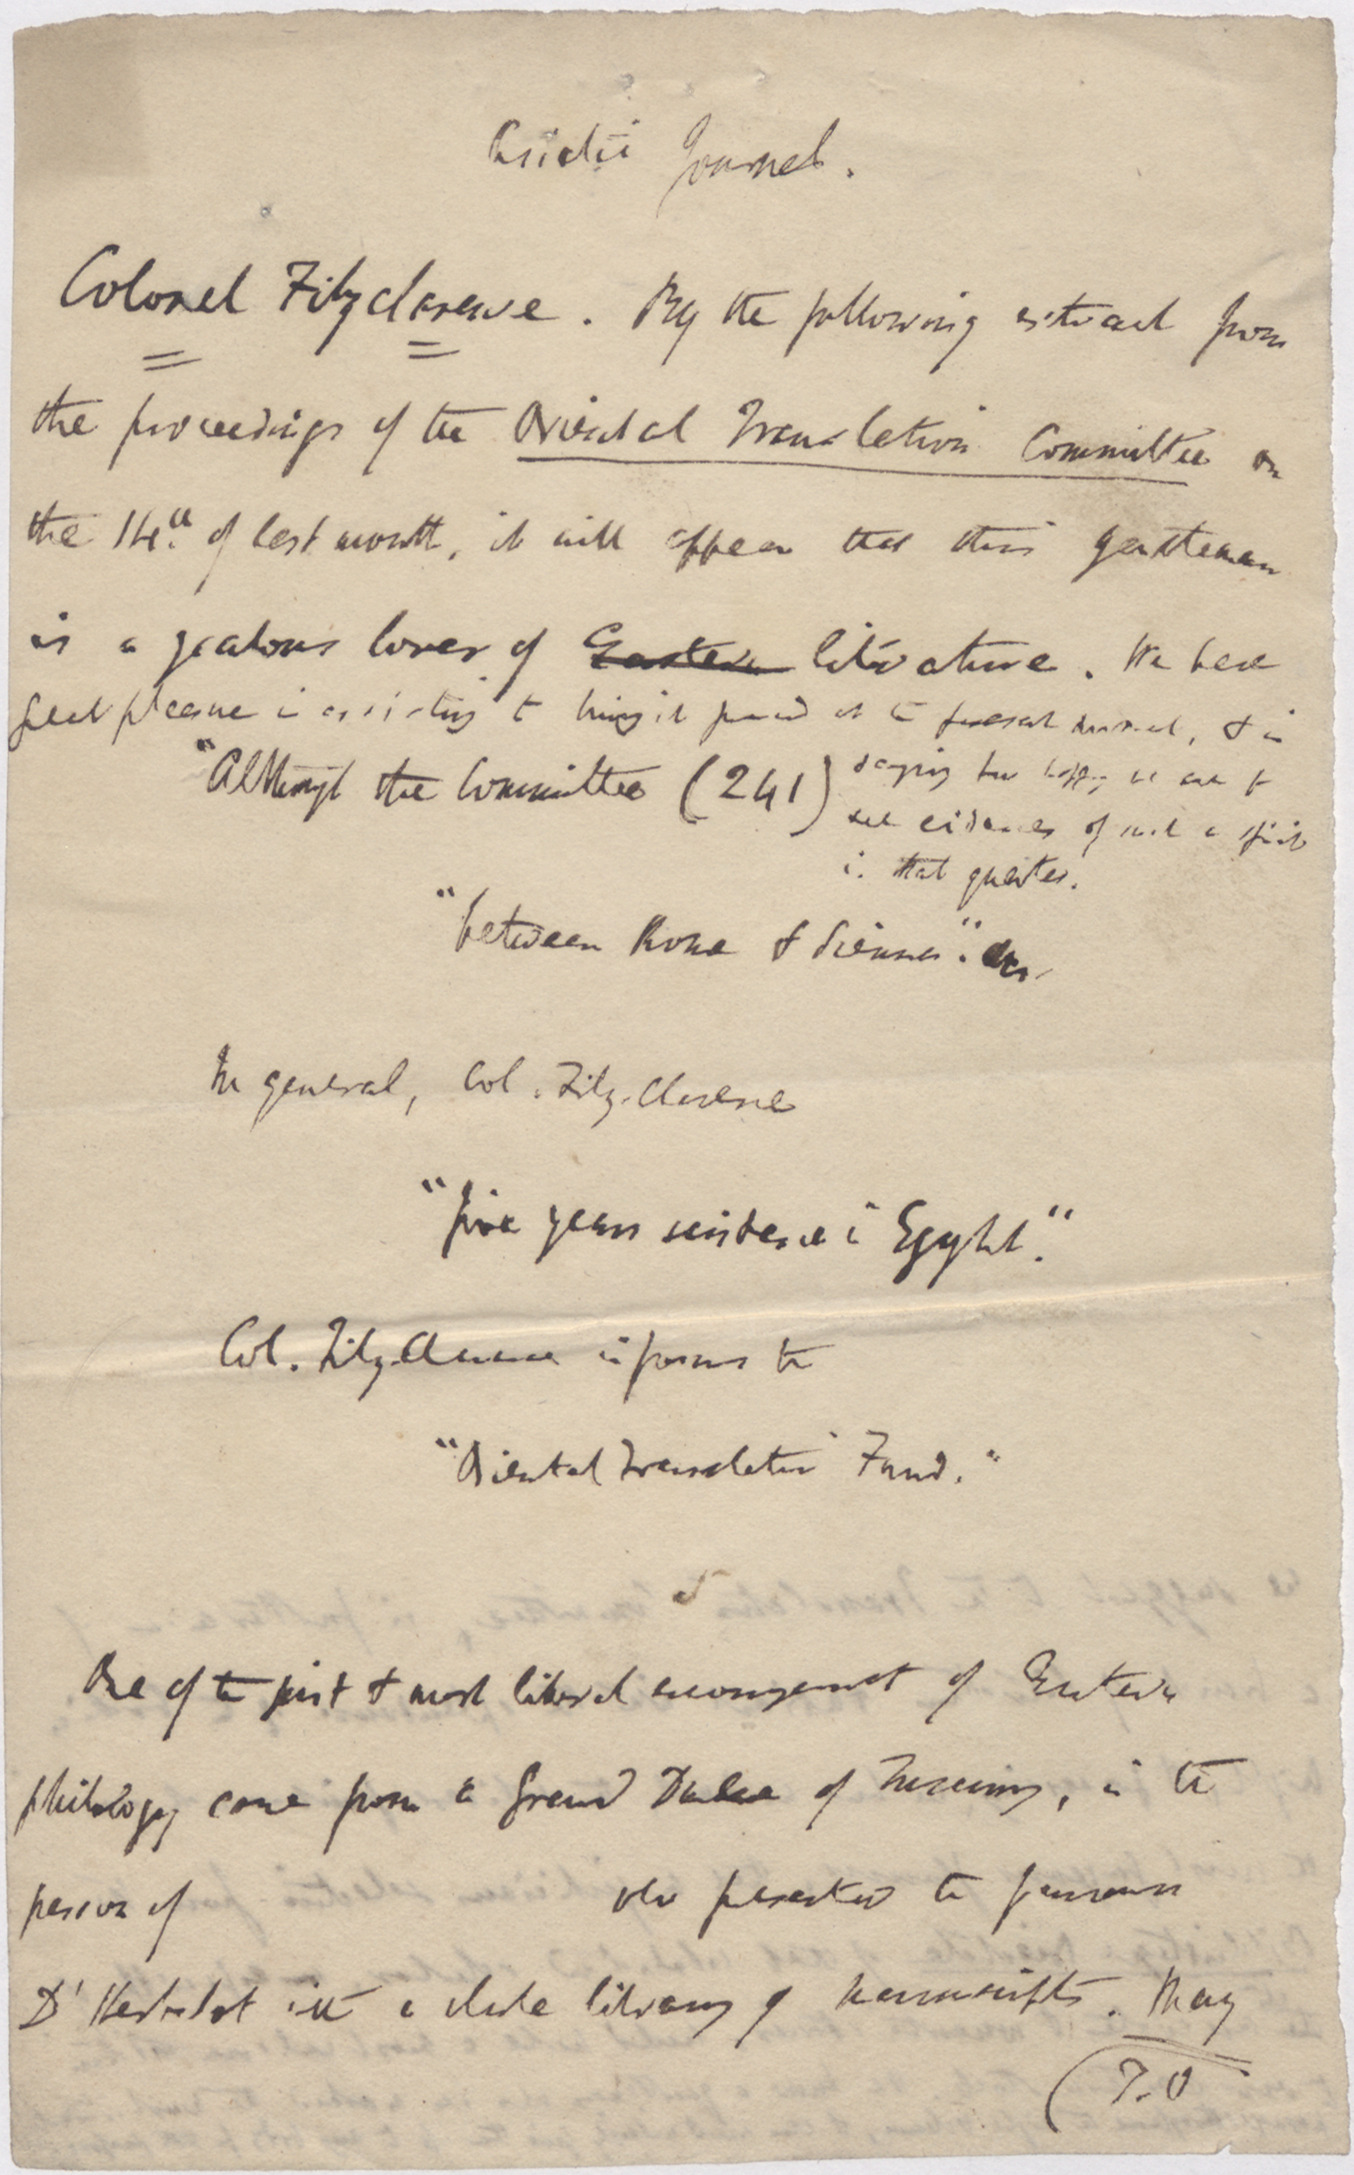 Asiatic Journal.
Colonel Fitzclarence. By the following extract from
the proceedings of the Oriental Translation Committee on
the 14th. of last month, it will appear that this gentleman
is a zealous lover of Eastern literature. We have
great pleasure in assisting to bring it forward at the present moment, & in
saying how happy we are to
see evidences of such a spirit
in that quarter.
"Although the Committee (241)
"between Rome & Sienna".
In general, Col. Fitz-Clarence
"five years residence in Egypt."
Col. Fitz-Clarence informs the
"Oriental Translation Fund."
One of the first & most liberal encouragement of Eastern
philology came from a Grand Duke of Tuscany, in the
person of who presented the famous
D'Herbelot with a whole library of manuscripts. May
T.O